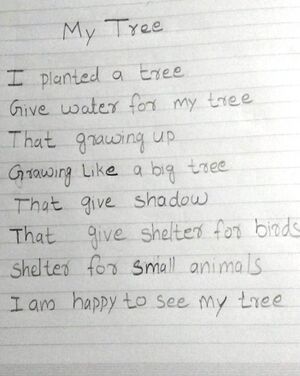 My Tree
I planted a tree
Give water for my tree
That grawing up
Grawing Like a big tree
That give shadow
That give shelter for birds
shelter for small animals
I am happy to see my tree